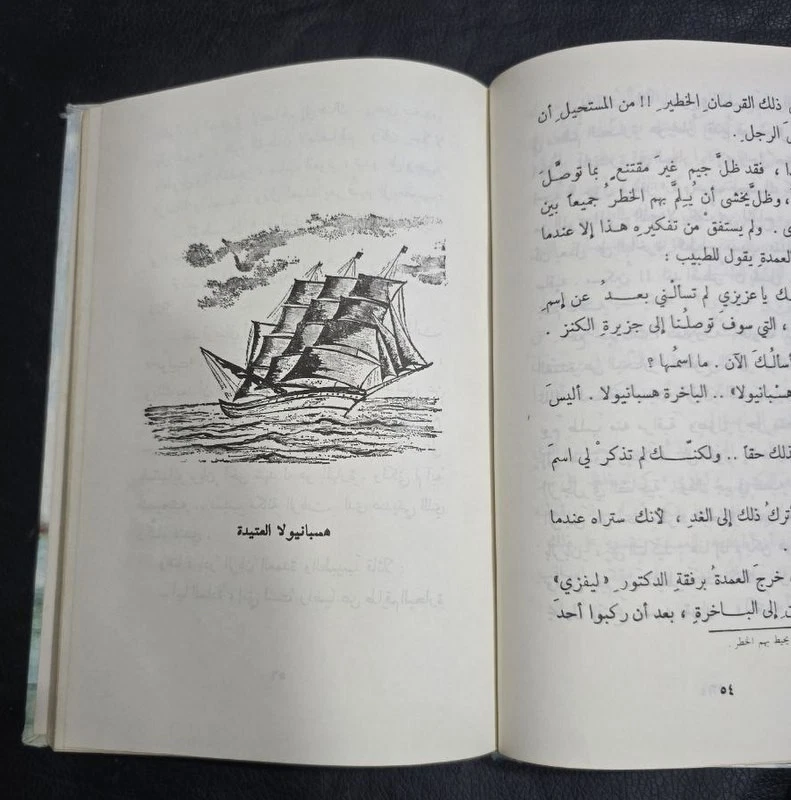 ذلك القرصانِ الخطيرِ !! من المستحيلِ أن
الرجل .
، فقد ظلَّ جيم غيرَ مقتنعٍ بما توصَّلَ
، وظلَّ يخشى أن يُـلمَّ بهم الخطرُ جميعاً بين
. ولم يستفقْ من تفكيرِه هـذا إلا عندما
العمدة يقول للطبيب :
يا عزيزي لم تسألْني بعـدُ عن إسمِ
، التي سوفَ توصلُنا إلى جزيرةِ الكنز .
أسألُـكَ الآن . ما اسمُها ؟
هسْبانيولا» .. الباخرة هسبانيولا . أليسَ
ذلك حقاً .. ولكنّـك لم تذكرْ لي اسمَ
أتركُ ذلك إلى الغدِ ، لأنك ستراه عندما
.
، خرجَ العمدةُ برفقةِ الدكتور «ليفزي»
إلى البـاخرةِ ، بعد أن ركبوا أحد
يحيط بهم الخطر .
٥٤
هسبانيولا العتيدة